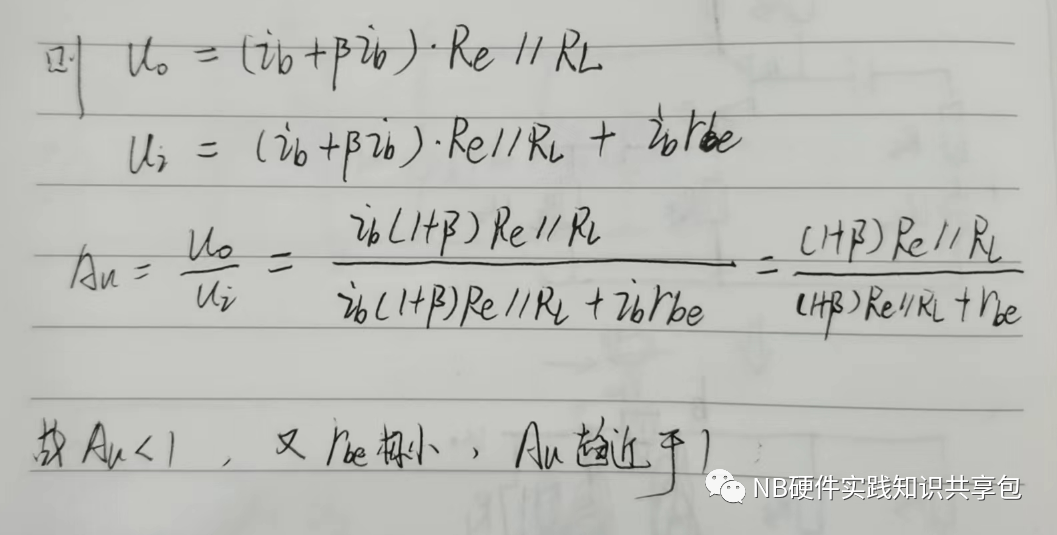 则 Uo = (ib+βib)·Re//RL
Ui = (ib+βib)·Re//RL + ibrbe
Au = Uo/Ui = ib(1+β)Re//RL / ib(1+β)Re//RL + ibrbe = (1+β)Re//RL / (1+β)Re//RL + rbe
故 Au<1 , 又 rbe 极小 , Au 趋近于 1
NB硬件实践知识共享包